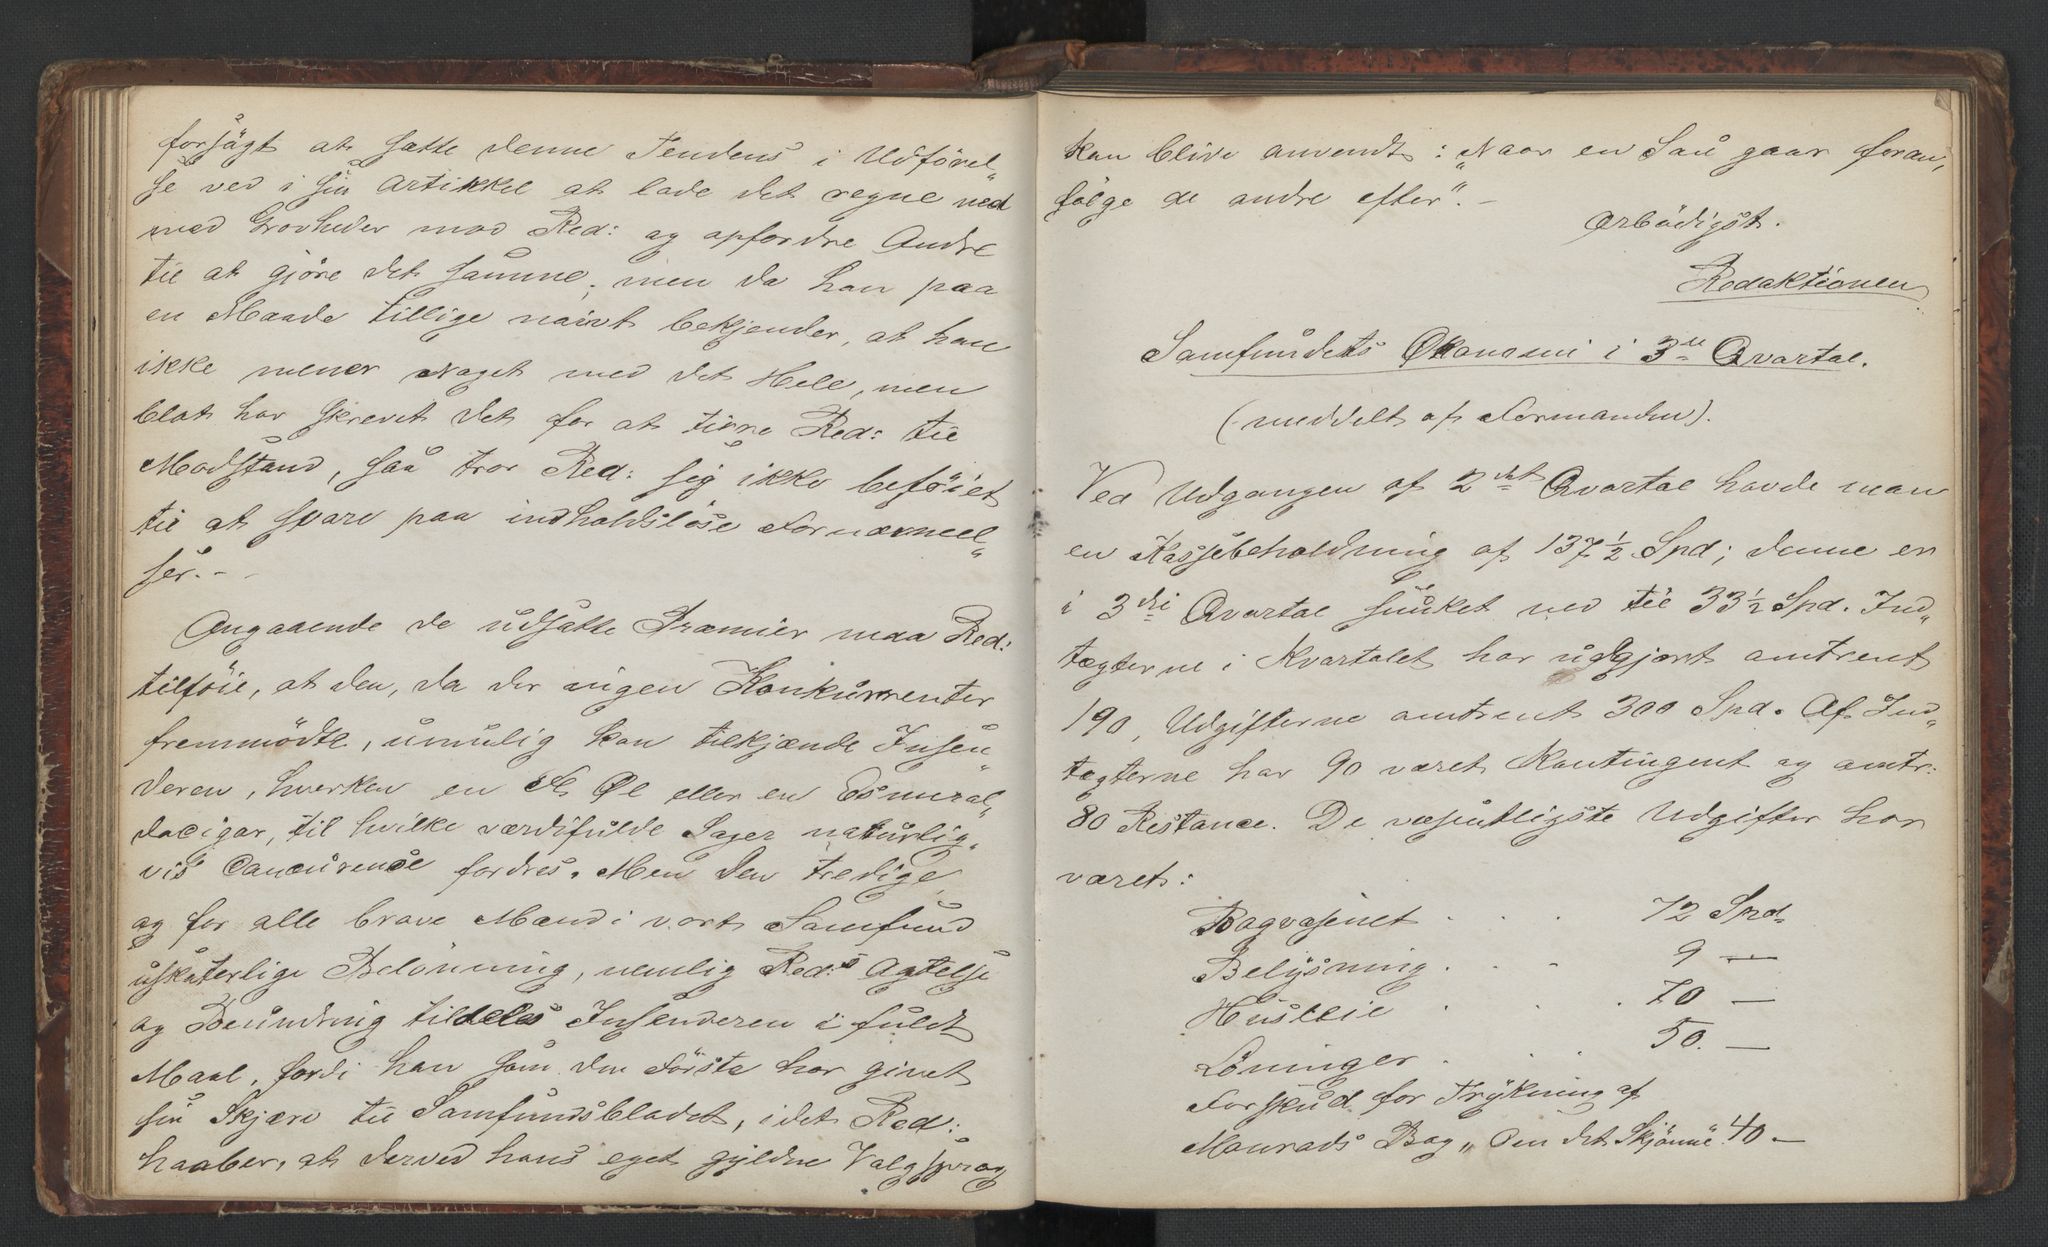 forsøgt at sætte denne Tendens i Udførel„
se ved i sin Artikkel at lade det regne ned
med Grovheder mod Red: og opfordre Andre
til at gjøre det samme; men da han paa
en Maade tillige naivt bekjender, at han
ikke mener Noget med det Hele, men
blot har skrevet det for at tirre Red: til
Modstand, saa tror Red: sig ikke beføiet
til at svare paa indholdsløse Fornærmel„
ser. –
Angaaende de udsatte Præmier maa Red:
tilføie, at den, da der ingen Konkurrenter
fremmødte, umulig kan tilkjænde Insen„
deren, hverken en Øl eller en Esmeral„
dacigar, til hvilke værdifulde Sager naturlig„
vis Concurence fordres. Men den tredige,
og for alle brave Mænd i vort Samfund
uskaterlige Belønning, nemlig Red:s Agtelse
og Beundring tildeles Insenderen i fuldt
Maal, fordi han som den Første har givet
sin Skjærv til Samfundsbladet, idet Red:
haaber, at derved hans eget gyldne Valgsprog
kan blive anvendt: „Naar en Sau gaar foran,
følge de andre efter”. –
Ærbødigst.
Redaktionen
Samfundets Økonomi i 3die Qvartal.
(meddelt af Formanden).
Ved Udgangen af 2det Qvartal havde man
en Kassebeholdning af 137½ Spd; denne er
i 3die Qvartal sunket ned til 33½ Spd. Ind„
tægterne i Kvartalet har udgjort omtrent
190, Udgifterne omtrent 300 Spd. Af Ind„
tægterne har 90 været Kontingent og omtr:
80 Restance. De væsentligste Udgifter har
været:
Bogvæsenet . . . 72 Spd.
Belysning . . . 9 —
Husleie . . . 70 —
Lønninger . . . 50. —
Forskud for Trykning af
Monrads Bog „Om det Skjønne” 40 —